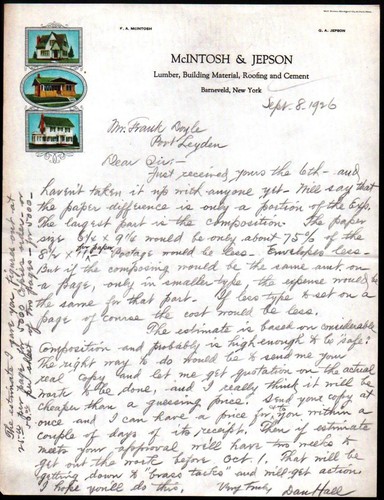 F. A. McINTOSH
G. A. JEPSON
McINTOSH & JEPSON
Lumber, Building Material, Roofing and Cement
Barneveld, New York
Sept. 8. 1926
Mr. Frank Doyle
Port Leyden
Dear Sir:-
Just received yours the 6th - and
haven't taken it up with anyone yet - Will say that
the paper difference is only a portion of the Exp.
The largest part is the composition. The paper
size 6 1/8 x 9 1/2 would be only about 75% of the
8 1/2 x 11 Postage would be less - Envelopes less -
But if the composing would be the same amt. on
a page, only in smaller type, the expense would be
the same for that part. If less type is set on a
page of course the cost would be less.
The estimate is based on considerable
composition and probably is high enough to be safe.
The right way to do would be to send me your
real copy and let me get quotation on the actual
work to be done, and I really think it will be
cheaper than a guessing price. Send your copy at
once and I can have a price for you within a
couple of days of its receipt. Then if estimate
meets your approval will have two weeks to
get out the work before Oct 1. That will be
getting down to "brass tacks" and will get action
I hope you'll do this.
Very Truly,
Dan Hall
The estimate I give you figures out at